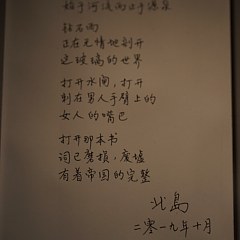 始于河流而止于源泉
钻石雨
正在无情地剖开
这玻璃的世界
打开水闸，打开
刺在男人手臂上的
女人的嘴巴
打开那本书
词已磨损，废墟
有着帝国的完整
北岛
二零一九年十月